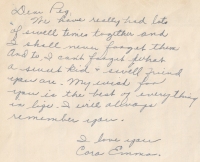 Dear Peg
We have really had lots
of swell times together and
I shall never forget them
And too I can't forget what
a sweet kid + swell friend
you are. My wish for
you is the best of everything
in life. I will always
remember you.
I love you
Cora Emma.